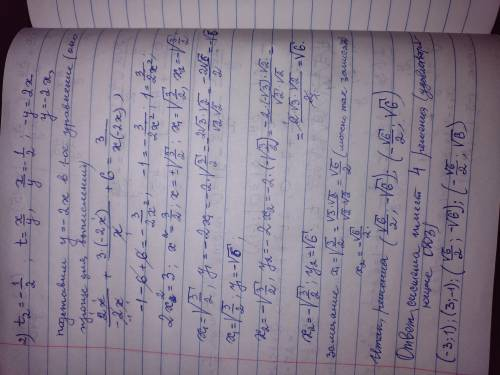 2) t₂ = -1/2; t = x/y; x/y = -1/2; -y = 2x
y = -2x,
подставим y = -2x в 1-ое уравнение (оно
проще для вычислений)
2x/-2x + 3·(-2x)/x + 6 = 3/x(2x);
-1 - 6 + 6 = -3/2x²; -1 = -3/2x²; 1 = 3/2x²,
2x² = 3; x² = 3/2; x = ±√3/2; x₁ = √3/2, x₂ = -√3/2
x₁ = √3/2; y₁ = -2x₁ = -2·√3/2 = -2√3·√2/√2·√2 = -2√6/2 = -√6
x₁ = √3/2; y₁ = -√6;
x₂ = -√3/2; y₂ = -2x₂ = -2·(-√3/2) = -2·(-√3)·√2/√2·√2 =
= 2·√3·√2/2 = √6.
x₂ = -√3/2; y₂ = √6.
замечание x₁ = √3/2 = √3·√2/√2·√2 = √6/2 (можно так записать)
x₂ = -√6/2
Итак, решения (√6/2; -√6); (-√6/2; √6)
Ответ: система имеет 4 решения (удовлетворя-
ющие ОДЗ)
(-3; 1); (3; -1); (√6/2; -√6); (-√6/2; √6)